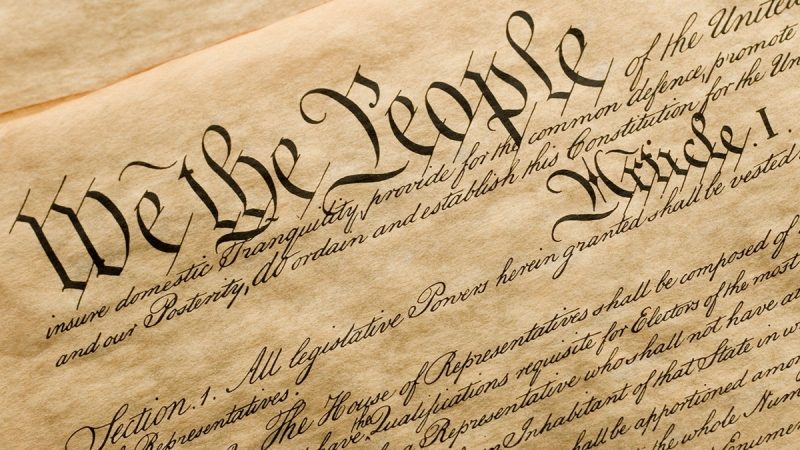 We the People of the United
insure domestic Tranquility, provide for the common defence, promote
and our Posterity, do ordain and establish this Constitution for the Un
Article. I.
Section. 1. All legislative Powers herein granted shall be vested
of Representatives.
The House of Representatives shall be composed of
have the Qualifications requisite for Electors of the most
Representative who shall not have at
Inhabitant of that State in w
shall be apportioned amon
the whole Num
Enumer